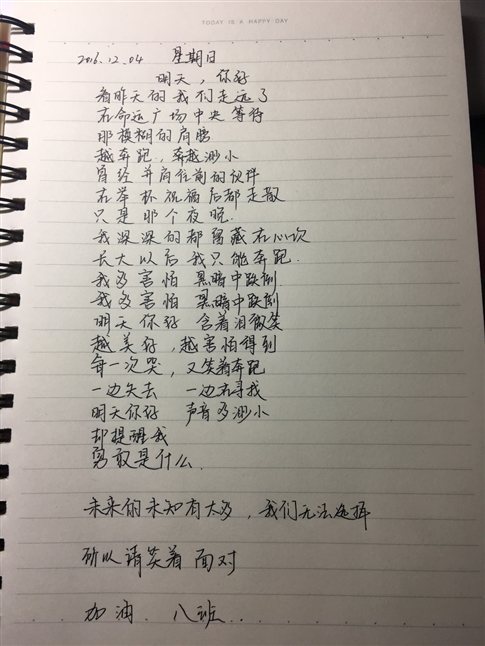 TODAY IS A HAPPY DAY
2016.12.04 星期日
明天,你好
看昨天的我们走远了
在命运广场中央等待
那模糊的肩膀
越奔跑,奔越渺小
曾经并肩往前的伙伴
在举杯祝福后都走散
只是那个夜晚.
我深深的都留藏在心坎
长大以后我只能奔跑.
我多害怕 黑暗中跌倒.
我多害怕 黑暗中跌倒
明天你好 含着泪微笑
越美好,越害怕得到
每一次哭,又笑着奔跑
一边失去 一边在寻找
明天你好 声音多渺小
却提醒我
勇敢是什么.
未来的未知有太多,我们无法选择
所以请笑着面对
加油. 八班..